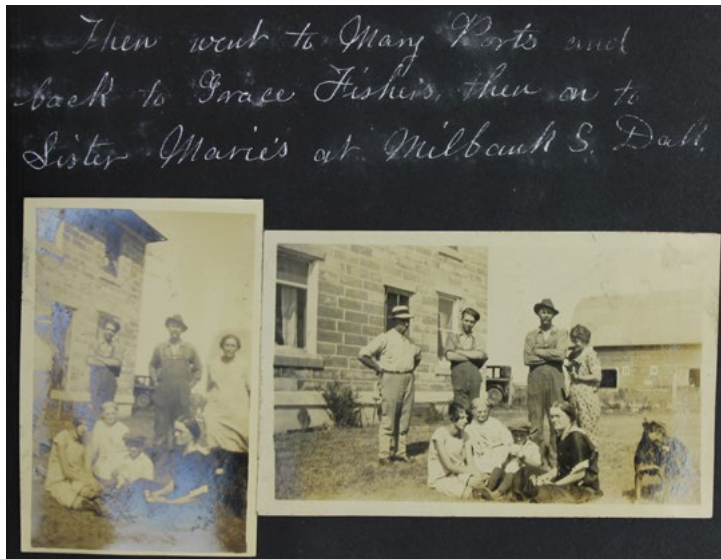 Then went to Mary Ports and
back to Grace Fishers, then on to
Sister Marie's at Milbank S. Dak.